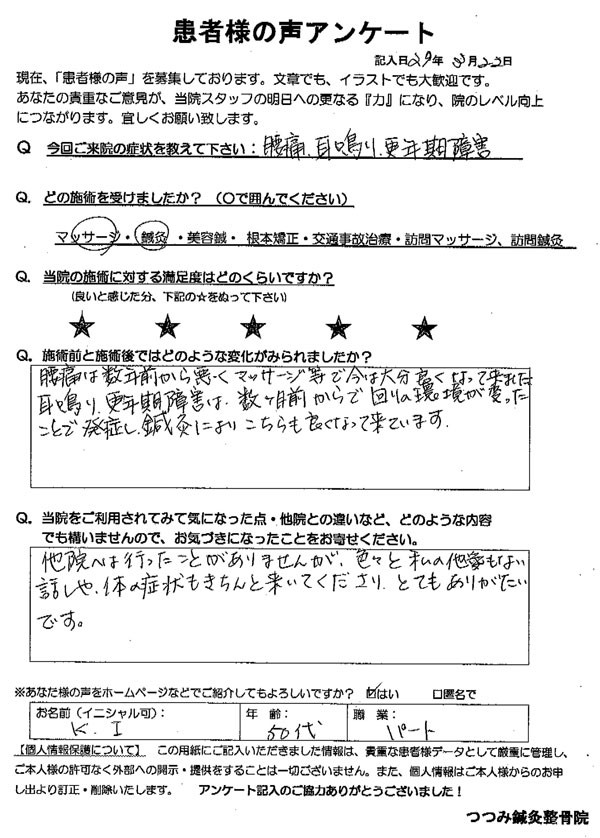 患者様の声アンケート
記入日29年3月22日
現在、「患者様の声」を募集しております。文章でも、イラストでも大歓迎です。
あなたの貴重なご意見が、当院スタッフの明日への更なる『力』になり、院のレベル向上
につながります。宜しくお願い致します。
Q 今回ご来院の症状を教えて下さい:腰痛、耳鳴り、更年期障害
Q. どの施術を受けましたか?(〇で囲んでください)
マッサージ・鍼灸・美容鍼・根本矯正・交通事故治療・訪問マッサージ、訪問鍼灸
Q. 当院の施術に対する満足度はどのくらいですか?
(良いと感じた分、下記の☆をぬって下さい)
★ ★ ★ ★ ★
Q. 施術前と施術後ではどのような変化がみられましたか?
腰痛は数年前から悪くマッサージ等で今は大分良くなって来ました
耳鳴り、更年期障害は、数ヶ月前からで回りの環境が変った
ことで発症し、鍼灸によりこちらも良くなって来ています。
Q. 当院をご利用されてみて気になった点・他院との違いなど、どのような内容
でも構いませんので、お気づきになったことをお寄せください。
他院へは行ったことがありませんが、色々と私の他愛もない
話しや、体の症状もきちんと来いてくださり、とてもありがたい
です。
※あなた様の声をホームページなどでご紹介してもよろしいですか? ☑はい □匿名で
お名前(イニシャル可): K.I 年 齢: 50代 職 業: パート
【個人情報保護について】 この用紙にご記入いただきました情報は、貴重な患者様データとして厳重に管理し、
ご本人様の許可なく外部への開示・提供をすることは一切ございません。また、個人情報はご本人様からのお申
し出より訂正・削除いたします。 アンケート記入のご協力ありがとうございました!
つつみ鍼灸整骨院